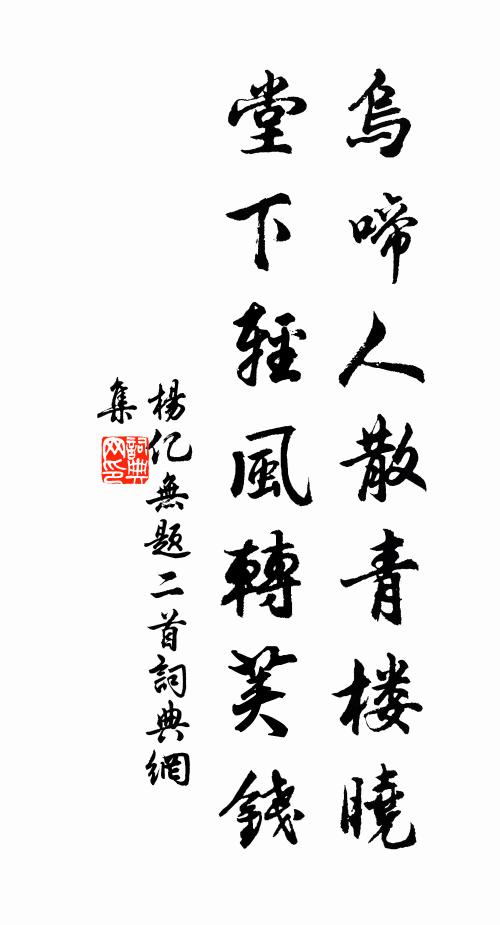 烏啼人散青楼曉
堂下輕風轉芙錢
楊亿無題二首詞典網
集
詞典网印